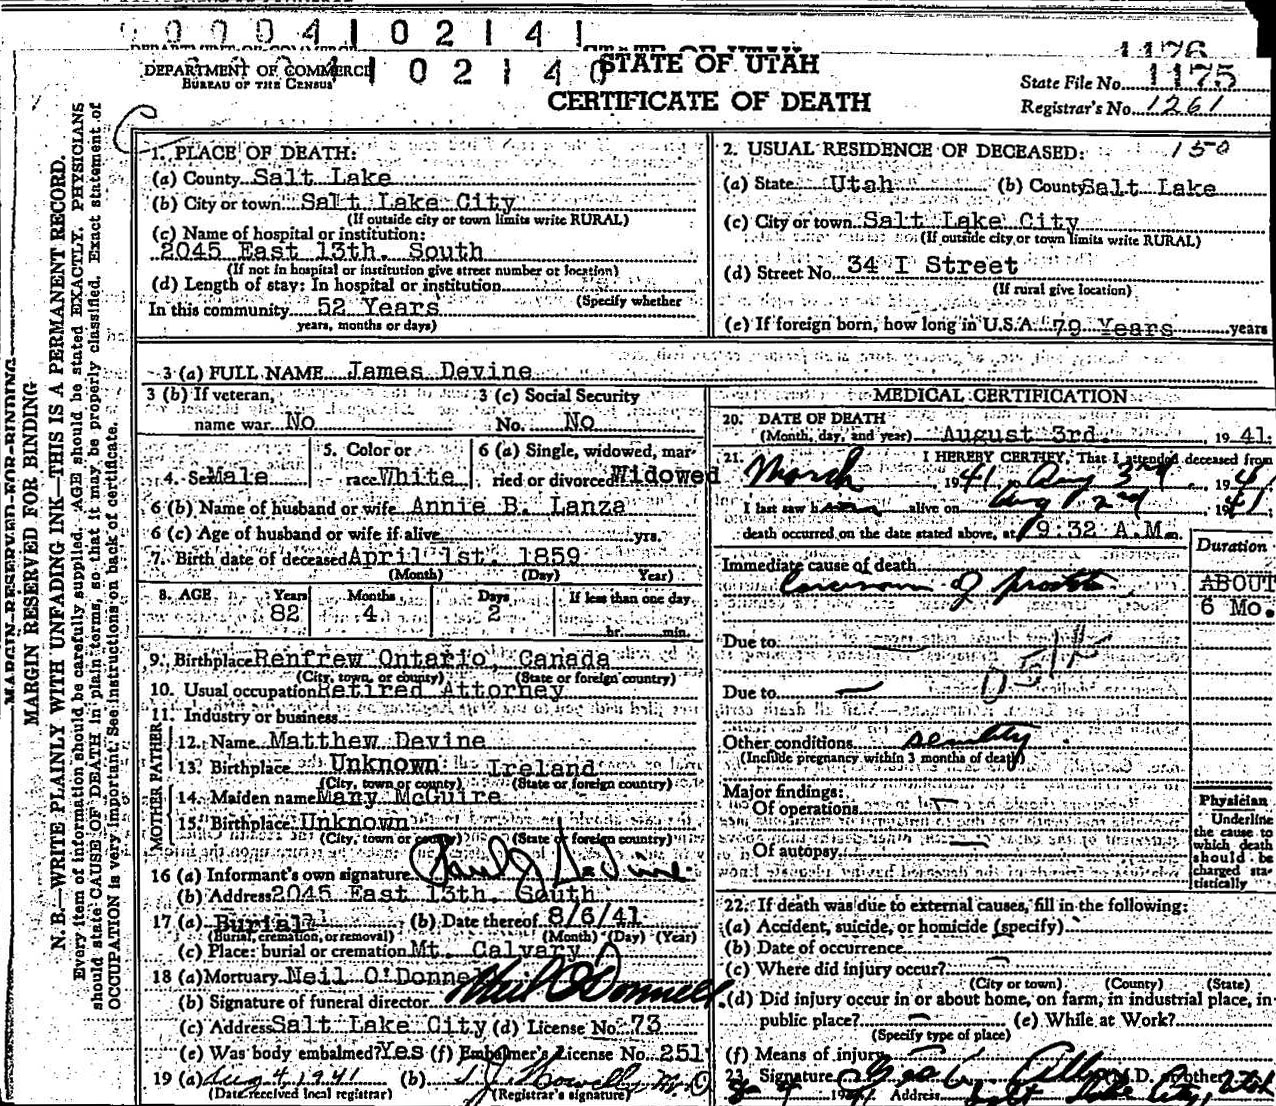 0 0 0 4 1 0 2 1 4 1
DEPARTMENT OF COMMERCE
BUREAU OF THE CENSUS
1 0 2 1 4 0
STATE OF UTAH
CERTIFICATE OF DEATH
1176
State File No. 1175
Registrar's No. 1261
MARGIN RESERVED FOR BINDING
MARGIN RESERVED FOR BINDING
N. B.—WRITE PLAINLY WITH UNFADING INK—THIS IS A PERMANENT RECORD.
Every item of information should be carefully supplied. AGE should be stated EXACTLY. PHYSICIANS
should state CAUSE OF DEATH in plain terms, so that it may be properly classified. Exact statement of
OCCUPATION is very important. See instructions on back of certificate.
1. PLACE OF DEATH:
(a) County Salt Lake
(b) City or town Salt Lake City
(If outside city or town limits write RURAL)
(c) Name of hospital or institution:
2045 East 13th. South
(If not in hospital or institution give street number or location)
(d) Length of stay: In hospital or institution
(Specify whether
In this community 52 Years
years, months or days)
2. USUAL RESIDENCE OF DECEASED: 150
(a) State Utah (b) County Salt Lake
(c) City or town Salt Lake City
(If outside city or town limits write RURAL)
(d) Street No. 34 I Street
(If rural give location)
(e) If foreign born, how long in U.S.A. 79 Years years
3 (a) FULL NAME James Devine
3 (b) If veteran,
name war No
3 (c) Social Security
No. No
4. Sex Male
5. Color or
race White
6 (a) Single, widowed, mar-
ried or divorced Widowed
6 (b) Name of husband or wife Annie B. Lanza
6 (c) Age of husband or wife if alive yrs.
7. Birth date of deceased April 1st. 1859
(Month) (Day) Year)
8. AGE Years Months Days If less than one day
82 4 2
hr. min.
9. Birthplace Renfrew Ontario, Canada
(City, town, or county) (State or foreign country)
10. Usual occupation Retired Attorney
11. Industry or business
FATHER
12. Name Matthew Devine
13. Birthplace Unknown Ireland
(City, town or county) (State or foreign country)
MOTHER
14. Maiden name Mary McGuire
15. Birthplace Unknown
(City, town or county) (State or foreign country)
16 (a) Informant's own signature Paul J Devine
(b) Address 2045 East 13th. South
17 (a) Burial (b) Date thereof 8/6/41
(Burial, cremation, or removal) (Month) (Day) (Year)
(c) Place: burial or cremation Mt. Calvary
18 (a) Mortuary Neil O'Donnel
(b) Signature of funeral director Neil O'Donnell
(c) Address Salt Lake City (d) License No. 73
(e) Was body embalmed? Yes (f) Embalmer's License No. 251
19 (a) Aug 4, 1941 (b) T. J. Howells M.D
(Date received local registrar) (Registrar's signature)
MEDICAL CERTIFICATION
20. DATE OF DEATH
(Month, day, and year) August 3rd. , 1941.
21. I HEREBY CERTIFY, That I attended deceased from
March 1941, Aug 3rd, 1941
I last saw h alive on Aug 2nd, 1941
death occurred on the date stated above, at 9:32 A.M.
Duration
Immediate cause of death
Carcinoma of prostate
ABOUT
6 Mo.
Due to
Due to
Other conditions senility
(Include pregnancy within 3 months of death)
Major findings:
Of operations
Of autopsy
Physician
Underline
the cause to
which death
should be
charged sta-
tistically
22. If death was due to external causes, fill in the following:
(a) Accident, suicide, or homicide (specify)
(b) Date of occurrence
(c) Where did injury occur?
(City or town) (County) (State)
(d) Did injury occur in or about home, on farm, in industrial place, in
public place? (e) While at Work?
(Specify type of place)
(f) Means of injury
23. Signature (M.D. or other)
Address Salt Lake City, Utah